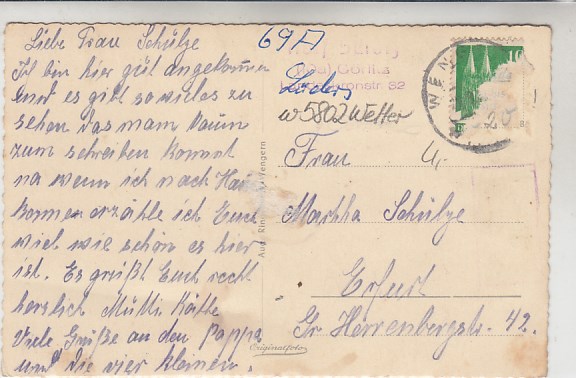 Liebe Frau Schülze
Ich bin hier güt angekommen
und es gibt so vieles zu
sehen das mam kaum
zum schreiben kommt
na wenn ich nach Hause
kommen erzähle ich Euch
wiel wie schön es hier
ist. Es grüßt Euch recht
herzlich Mütti Käthe
Viele Grüße an den Pappa
und die vier kleinen.
69A
Görlitz
32
w5802 Wetter
WEN
10
Frau
Martha Schülze
Erfurt
Gr. Herrenbergstr. 42.
Wengern
Originalfoto